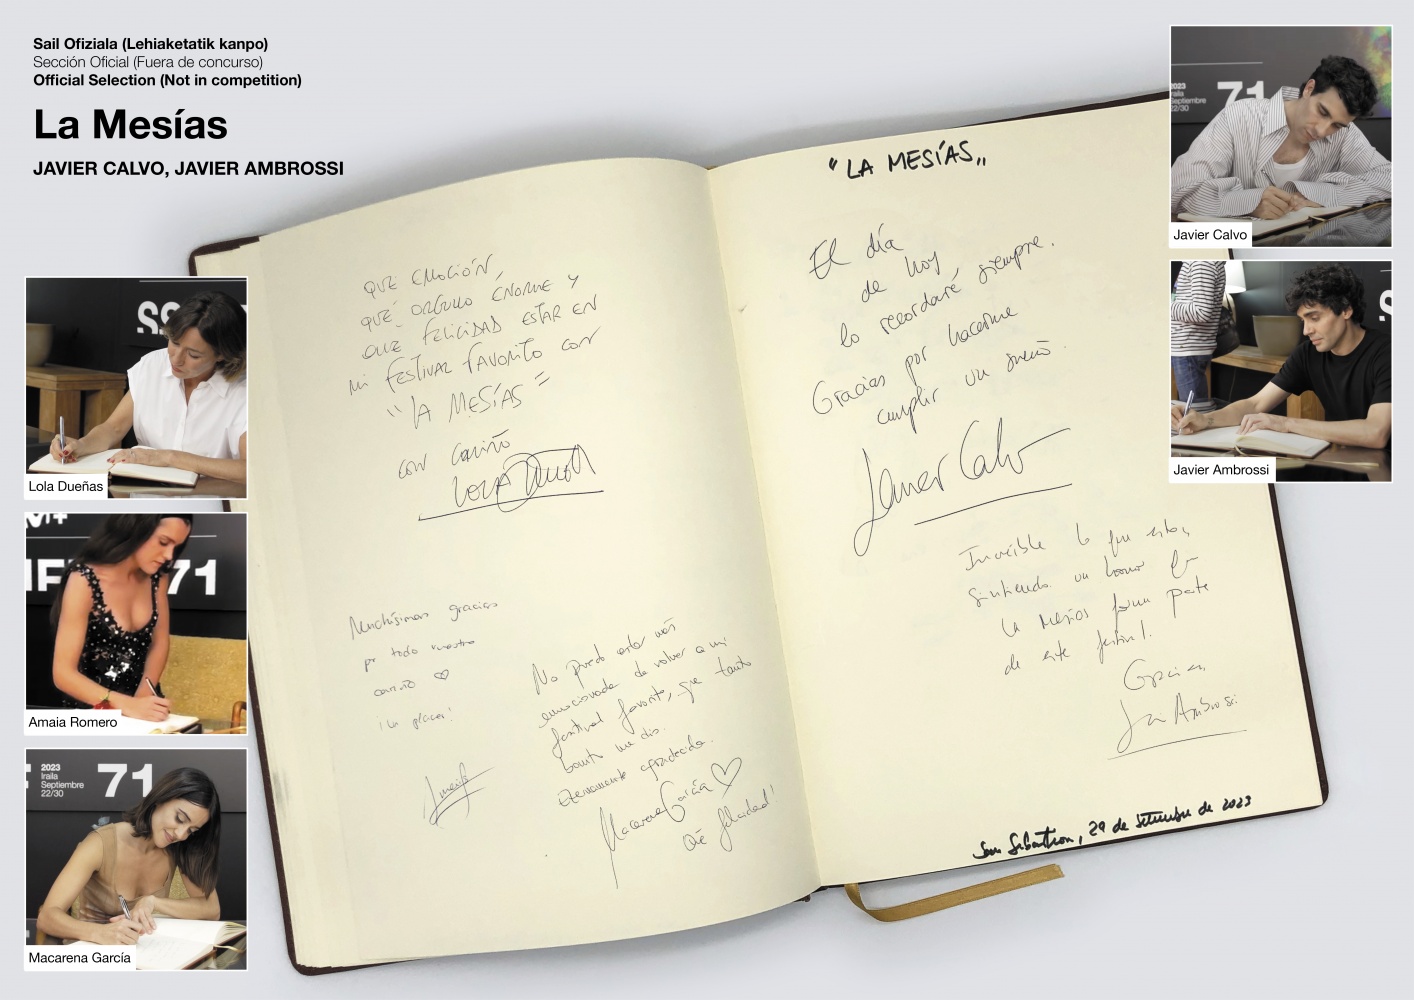 Sail Ofiziala (Lehiaketatik kanpo)
Sección Oficial (Fuera de concurso)
Official Selection (Not in competition)
La Mesías
JAVIER CALVO, JAVIER AMBROSSI
Lola Dueñas
71
Amaia Romero
2023
Iraila
Septiembre
22/30
71
Macarena García
QUÉ EMOCIÓN,
QUÉ ORGULLO ENORME Y
QUE FELICIDAD ESTAR EN
MI FESTIVAL FAVORITO CON
"LA MESÍAS"
CON CARIÑO
LOLA DUEÑAS
Muchísimas gracias
por todo vuestro
cariño ♡
¡Un placer!
Amaia
No puedo estar más
emocionada de volver a mi
festival favorito, que tanto
me dio.
Eternamente agradecida.
Macarena García ♡
Qué felicidad!
"LA MESÍAS"
El día
de hoy
lo recordaré siempre.
Gracias por hacerme
cumplir un sueño.
Javier Calvo
Increíble lo que estoy
sintiendo. un honor q
La Mesías forme parte
de este festival.
Gracias,
Javi Ambrossi
San Sebastian, 29 de setiembre de 2023
2023
Iraila
Septiembre
22/30
71
Javier Calvo
Javier Ambrossi